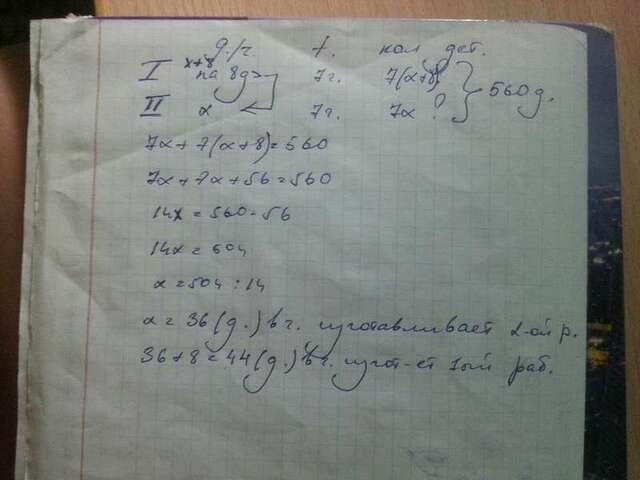 д./ч. t. кол. дет.
I х+8 на 8д> 7ч. 7(х+8) } 560д.
II х 7ч. 7х ?
7х+7(х+8)=560
7х+7х+56=560
14х=560-56
14х=504
х=504:14
х=36(д.) в ч. изготавливает 2-ой р.
36+8=44(д.) в ч. изгот-ет 1ый раб.